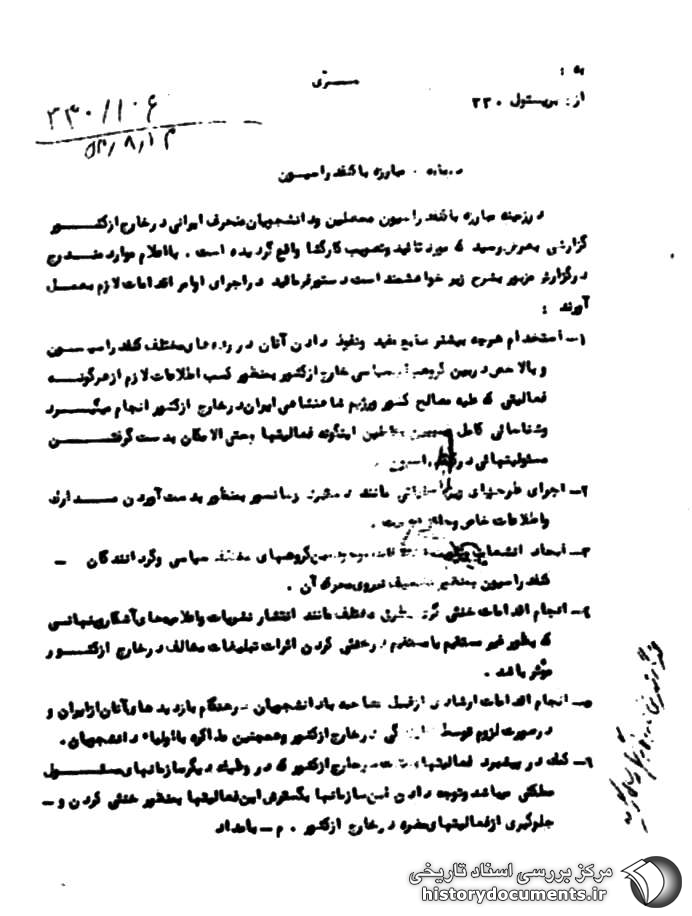 به :
سری
از : بریستول ۲۳۰
۲۳۰/۱۰۶
۵۳/۸/۱۴
درباره . مبارزه با کنفدراسیون
در زمینه مبارزه با کنفدراسیون محصلین و دانشجویان منحرف ایرانی در خارج از کشور
گزارشی بعرض رسید که مورد تائید و تصویب کارگشا واقع گردیده است . با اعلام موارد مندرج
در گزارش مزبور بشرح زیر خواهشمند است دستور فرمائید در اجرای اوامر اقدامات لازم بعمل
آورند :
۱- استخدام هرچه بیشتر منابع مفید و نفوذ دادن آنان در رده های مختلف کنفدراسیون
و بالاخص در بین گروههای سیاسی خارج از کشور بمنظور کسب اطلاعات لازم از هرگونه
فعالیتی که علیه مصالح کشور و رژیم شاهنشاهی ایران در خارج از کشور انجام میگیرد
و شناسائی کامل عاملین اینگونه فعالیتها و حتی الامکان بدست گرفتن
مسئولیتهائی در کنفدراسیون .
۲- اجرای طرحهای مانند و سانسور بمنظور بدست آوردن مدارک
و اطلاعات خاص
۳- ایجاد انشعاب و بین گروههای مختلف سیاسی و گردانندگان -
کنفدراسیون بمنظور تضعیف نیروی محرکه آن .
۴- انجام اقدامات خنثی گری بطرق مختلف مانند انتشار نشریات و اعلامیه های آشکار و پنهانی
که بطور غیر مستقیم یا مستقیم در خنثی کردن اثرات تبلیغات مخالف در خارج از کشور
مؤثر باشد .
۵- انجام اقدامات ارشادی از قبیل مصاحبه با دانشجویان در هنگام بازدیدهای آنان از ایران و
در صورت لزوم توسط نمایندگی در خارج از کشور و همچنین مذاکره با اولیاء دانشجویان .
۶- کمک در پیشبرد فعالیتهای خارج از کشور که در وظیفه دیگر سازمانهای مسئول
مملکتی میباشد و توجه دادن این سازمانها بگسترش این فعالیتها بمنظور خنثی کردن و -
جلوگیری از فعالیتهای مضره در خارج از کشور . م - بامداد
مرکز بررسی اسناد تاریخی
historydocuments.ir